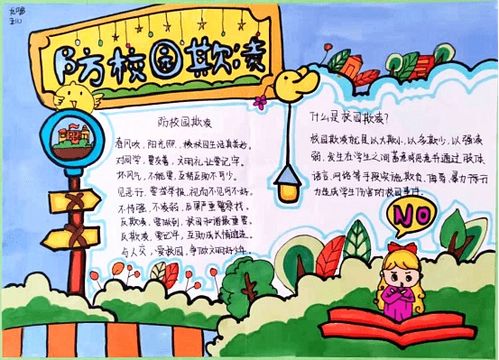 防校园欺凌
防校园欺凌
春风吹，阳光照，校园生活真美妙。
对同学，要友善，文明礼让要记牢。
坏风气，不能要，互相互助不可少。
见恶行，要举报，视而不见不好。
不恃强，不凌弱，后果严重
反欺凌，要做到，校园和谐最重要。
反欺凌，要记牢，互助成长情谊
与人交，爱校园，争做文明好少年。
什么是校园欺凌？
校园欺凌就是以大欺小，以多欺少，以强凌
弱，发生在学生之间蓄意或恶意通过肢体、
语言、网络等手段实施欺负、侮辱、暴力等行
为造成学生伤害的校园事件。
NO